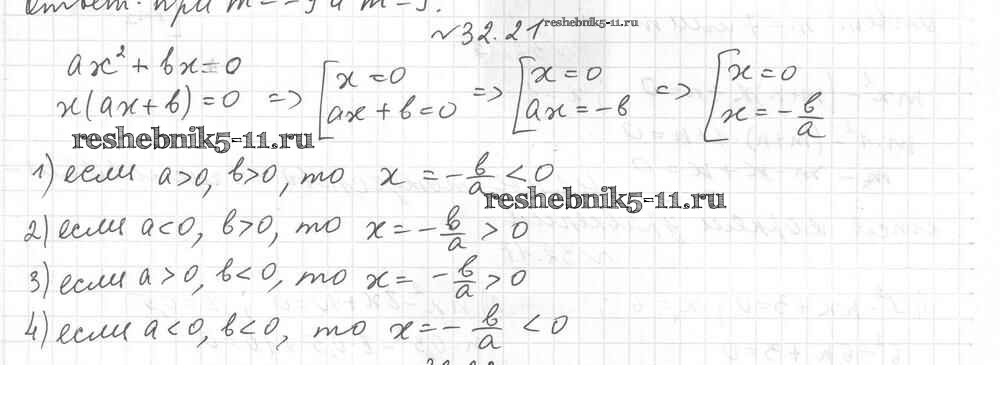 Ответ: при m=-9 и m=
№32.21 reshebnik5-11.ru
ax² + bx = 0
x(ax+b)=0 => [x=0 ax+b=0 => [x=0 ax=-b => [x=0 x=-b/a
reshebnik5-11.ru
1) если a>0, b>0, то x = -b/a < 0
reshebnik5-11.ru
2) если a<0, b>0, то x = -b/a > 0
3) если a>0, b<0, то x = -b/a > 0
4) если a<0, b<0, то x = -b/a < 0